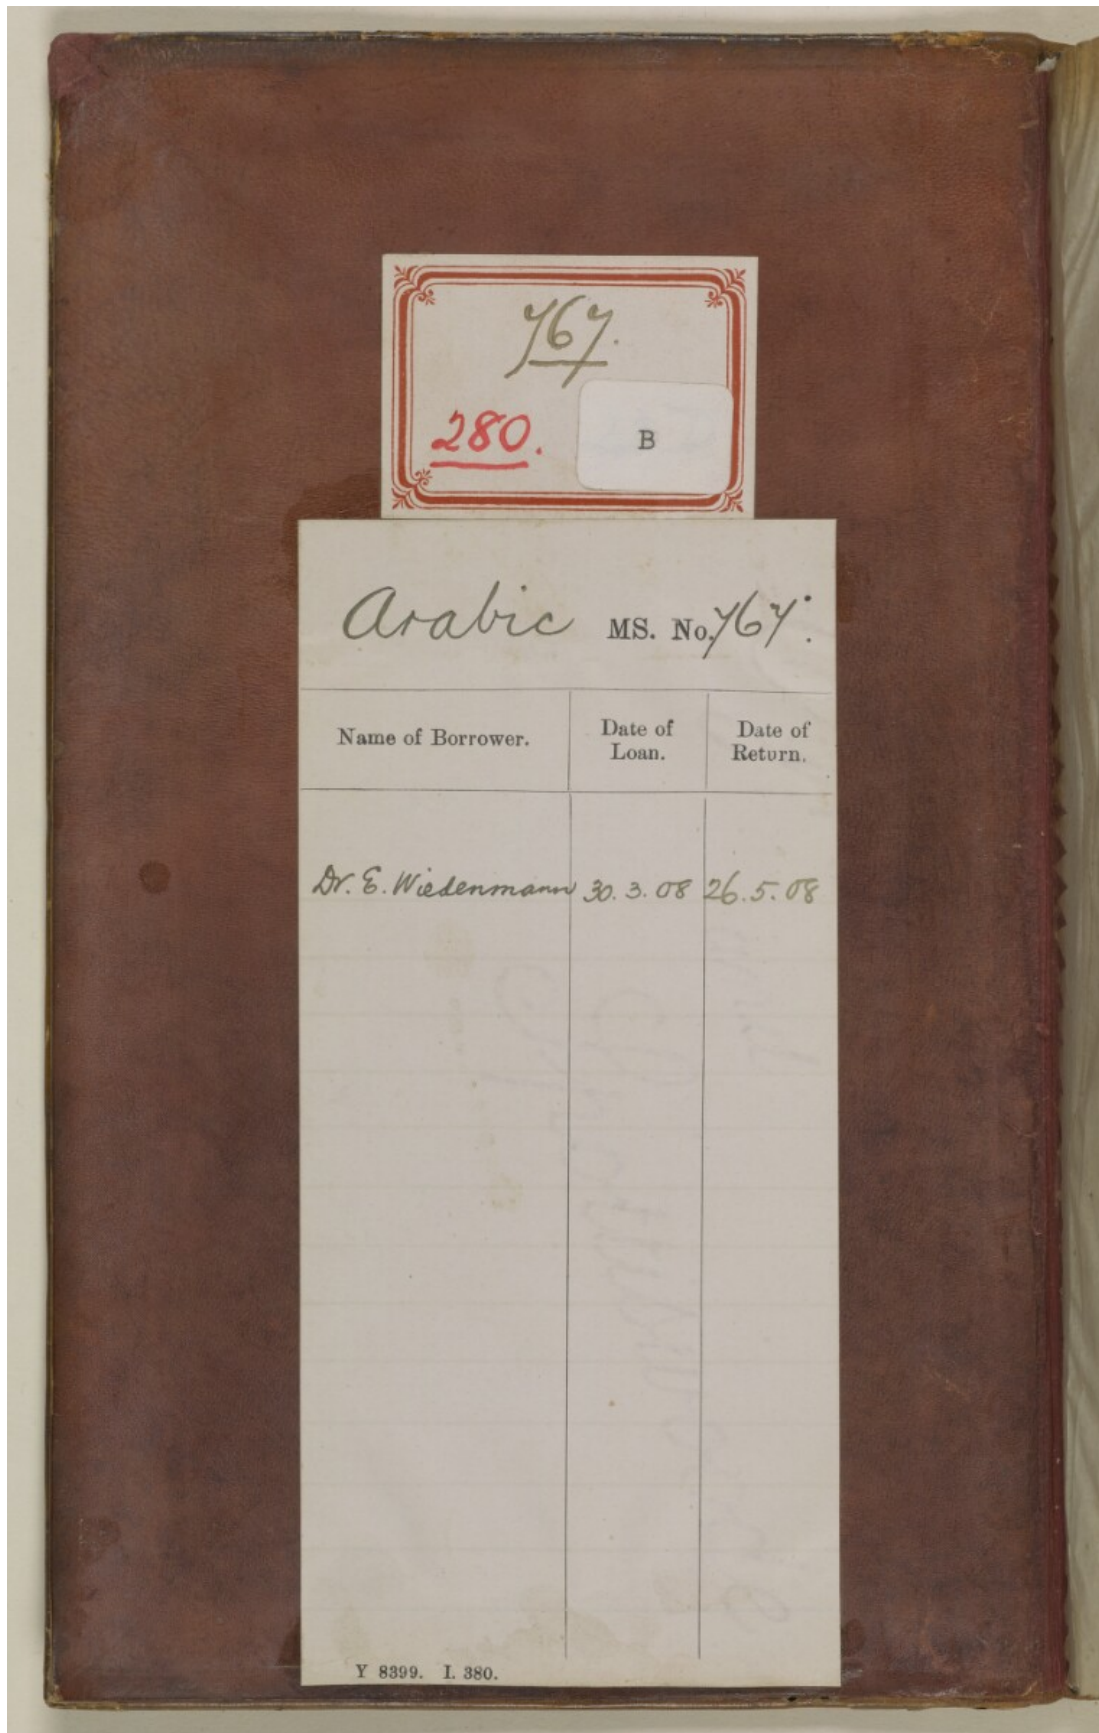 767.
280.
B
Arabic MS. No. 767.
Name of Borrower.
Date of Loan.
Date of Return.
Dr. E. Wiedenmann 30.3.08 26.5.08
Y 8399. I. 380.